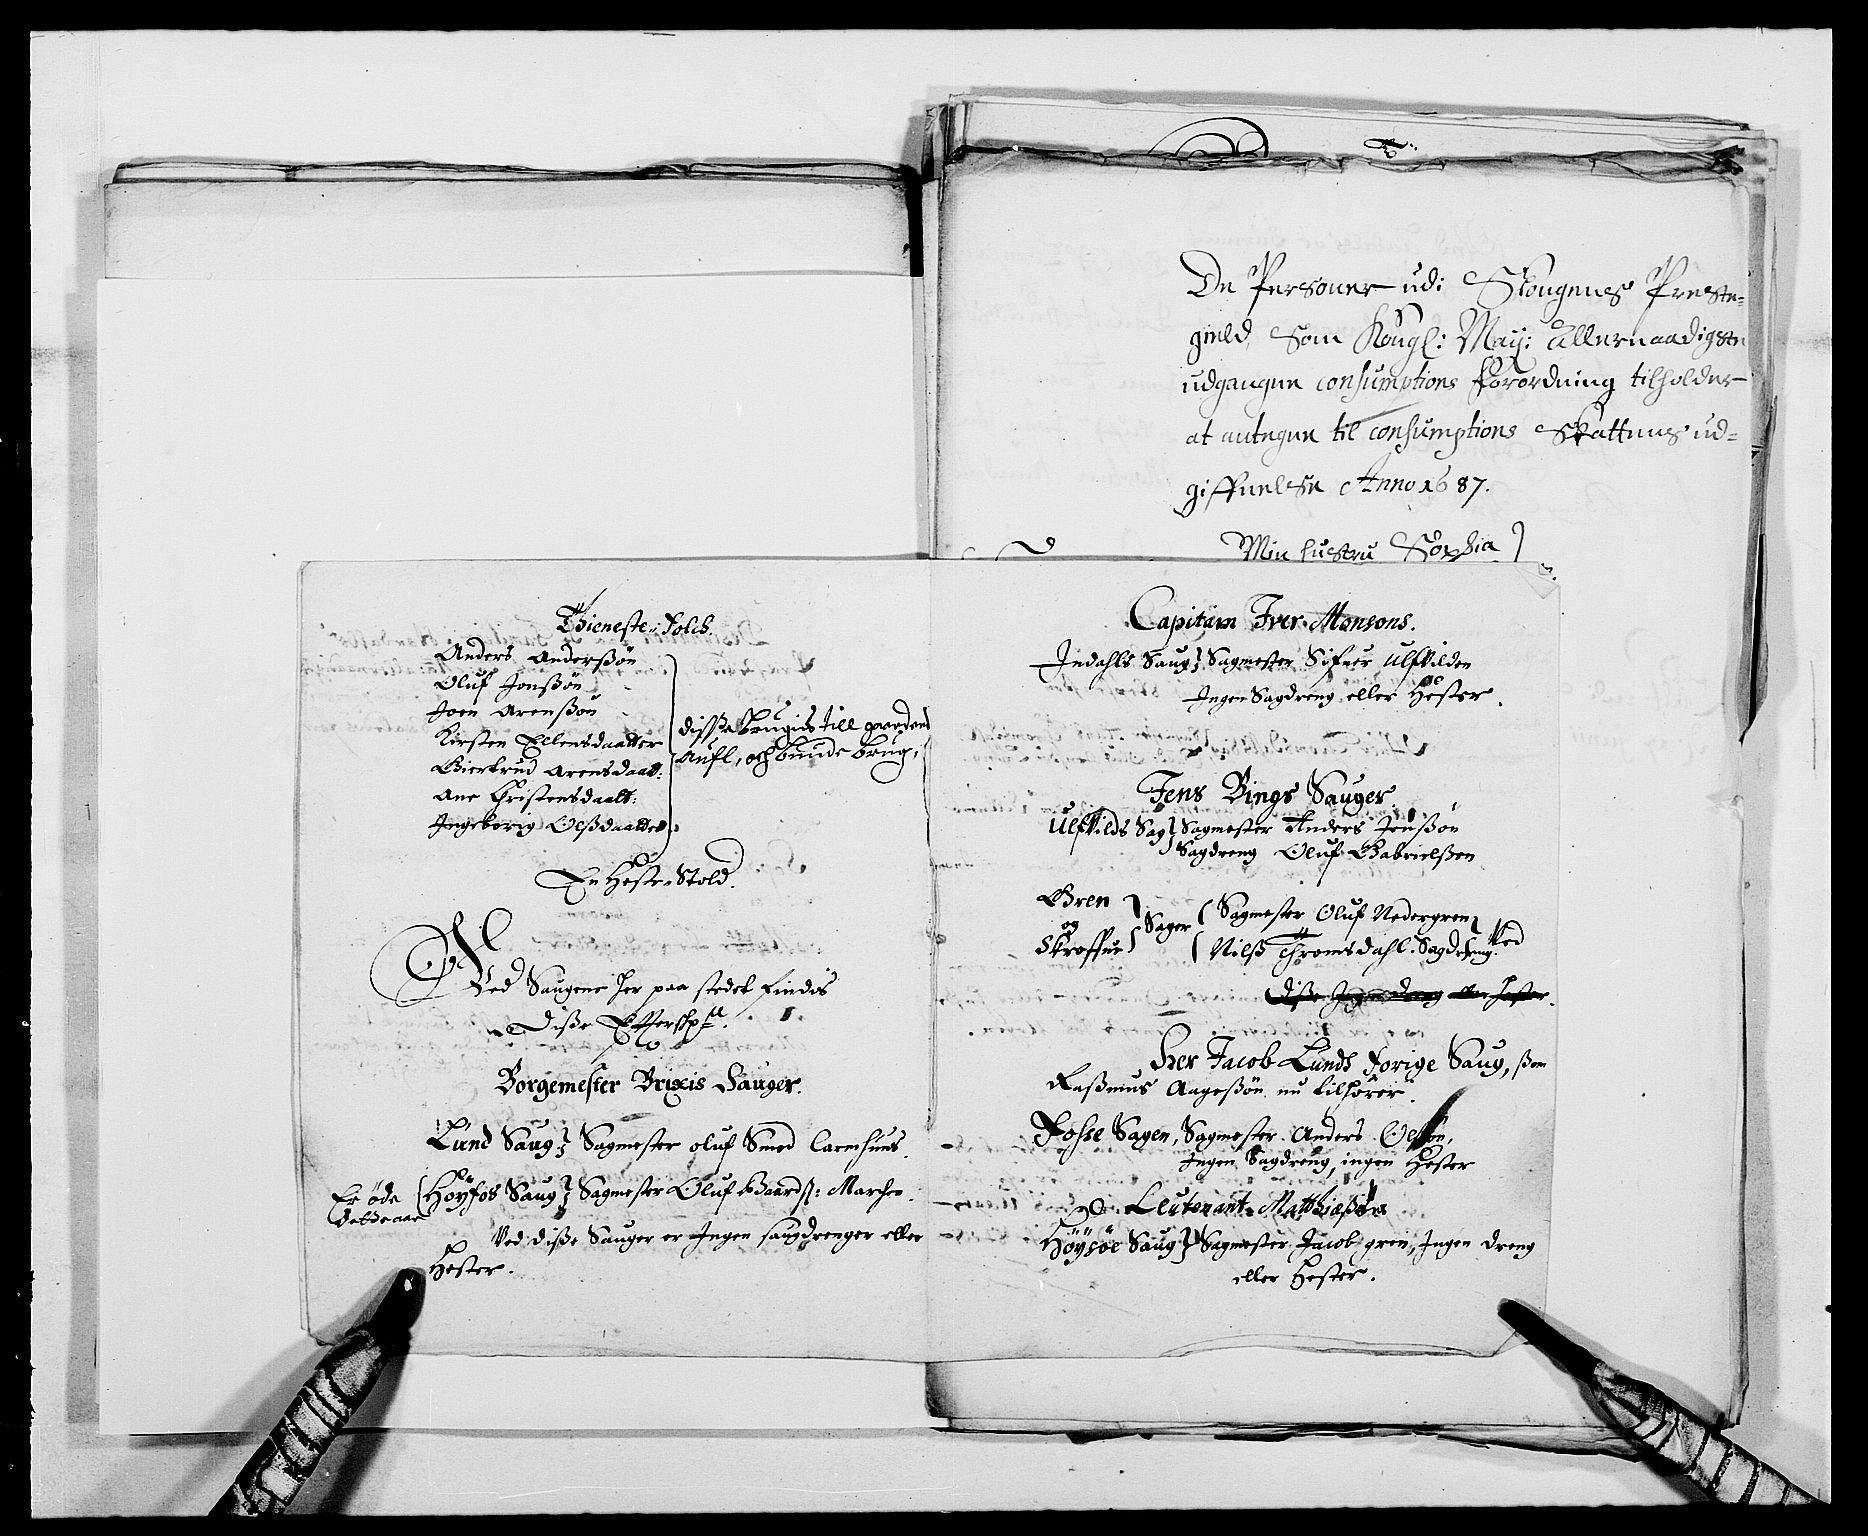 De Personer udi Skougens Preste-
gield, Som Kongl: May: Allernaadigste
udgangne consumptions forordning tilholder
at antegne til consumptions Skattens ud-
giffuelse Anno 1687.
Min hustru Sophia
Thieneste-Folch.
Anders Anderßøn
Oluf Jonßøn
Joen Arenßøn
Kirsten Ellensdaatter
Giertrud Arensdaatt:
Ane Christensdaatt:
Ingeborig Olßdaatter
disße brugis till gaardens
aufl, och bunde brug;
En Heste Stold.
Ved Saugene her paa stedet findis
Diße
Borgemester Brixis Sauger.
Lund Saug Sagmester oluf Smed
Er øde
dette aar
Høyfos Saug Sagmester Oluf Baardß: Marchen.
Ved diße Sauger er Ingen saugdrenger eller
Hester.
Capitain Iver Monsons.
Indahls Saug Sagmester Sifuer Ulfvilden
Ingen Sagdreng eller Hester.
Jens Bings Sauger
Ulfvilds Sag Sagmester Anders Jenßøn
Sagdreng Oluf Gabrielßen
Gren
og
Skroffue
Sager
Sagmester Oluf Nedergren
Nilß Thromsdahl. Sagdreng.
Ved
diße Ingen dreng eller hester.
Her Jacob Lunds Forige Saug, ßom
Raßmus Aageßøn nu tilhører.
Fosse Sagen, Sagmester Anders Olßøn,
Ingen Sagdreng, ingen Hester
Leutenant Matthiæßøns
Høysøe Saug Sagmester Jacob gren, Ingen dreng
eller Hester.